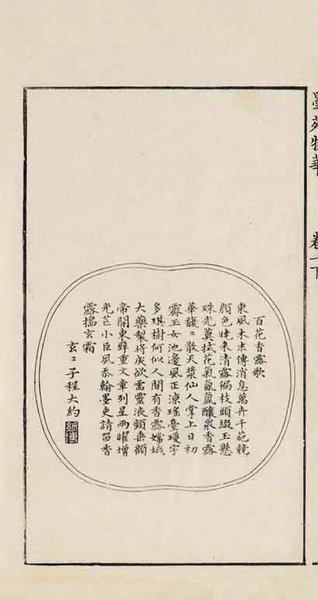 墨苑物華 卷
百花香露歌
東風木末傳消息萬卉千葩競
顏色曉來清露枝頭綴玉懸
珠光莫拭花氣氤氳釀衆香露
華馥〻散天漿仙人掌上日初
霽玉女池邊風正涼瑤臺瓊宇
多琪樹何似人間有香露嫦娥
大藥製將成欲需靈液頻垂顧
帝開東壁重文章列星兩曜增
光芒小臣夙忝翰墨吏請留香
露搗玄霜
玄〻子程大約